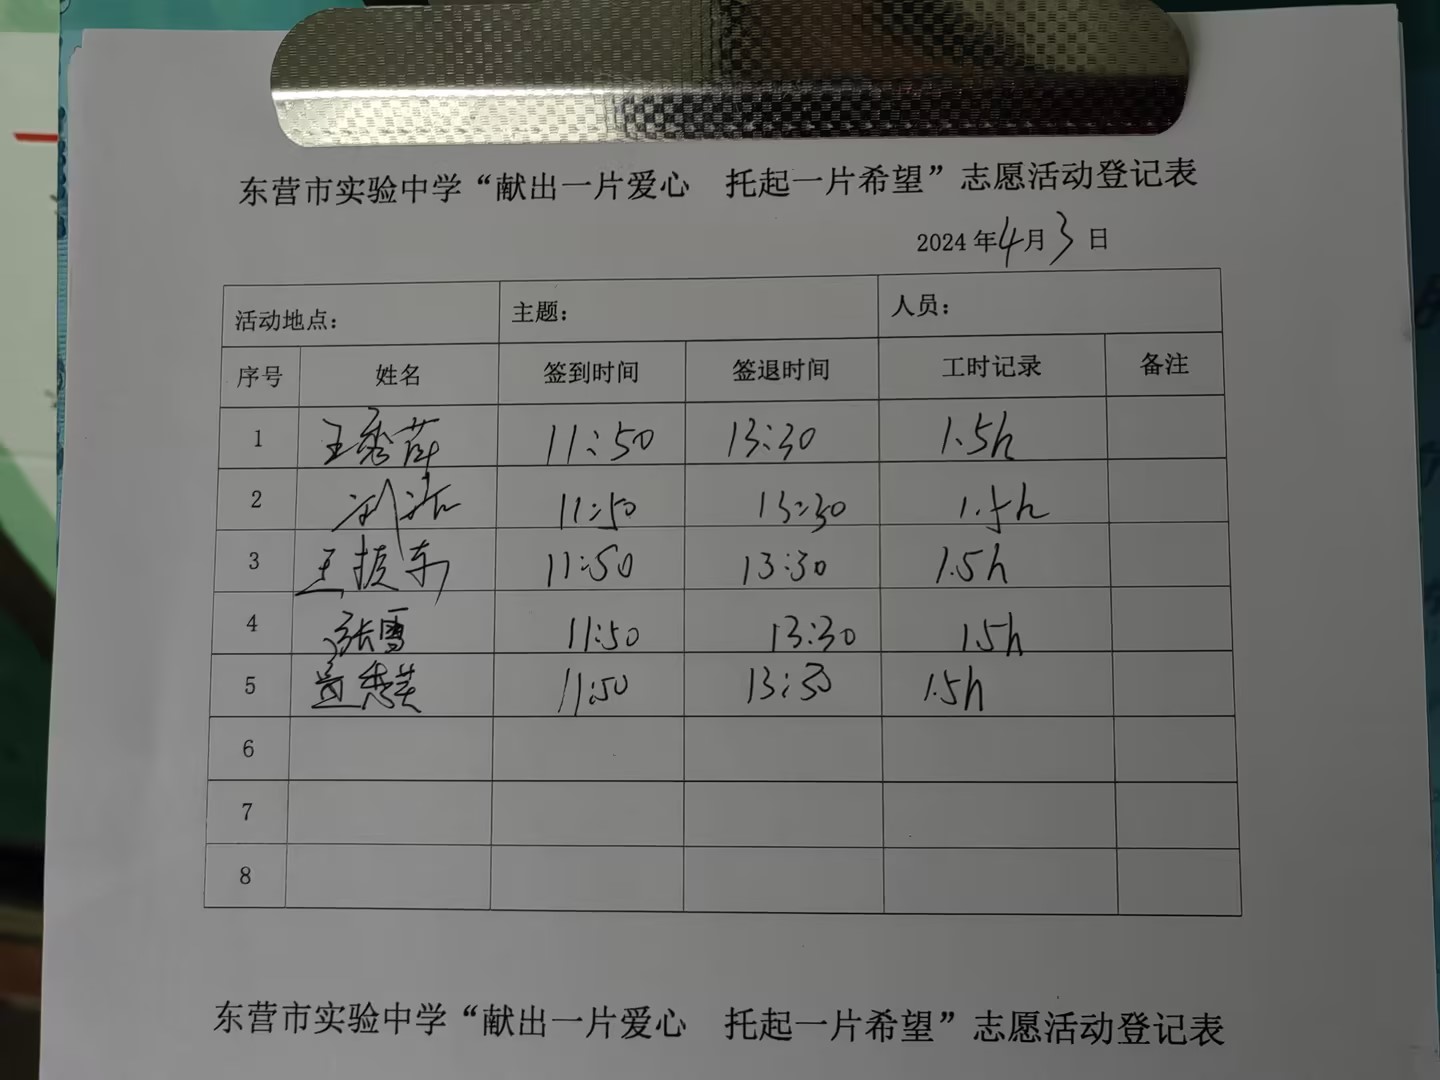 东营市实验中学“献出一片爱心 托起一片希望”志愿活动登记表
2024年4月3日
活动地点： 主题： 人员：
序号 姓名 签到时间 签退时间 工时记录 备注
1 王秀萍 11:50 13:30 1.5h
2 11:50 13:30 1.5h
3 王 东 11:50 13:30 1.5h
4 张雪 11:50 13:30 1.5h
5 11:50 13:30 1.5h
6
7
8
东营市实验中学“献出一片爱心 托起一片希望”志愿活动登记表